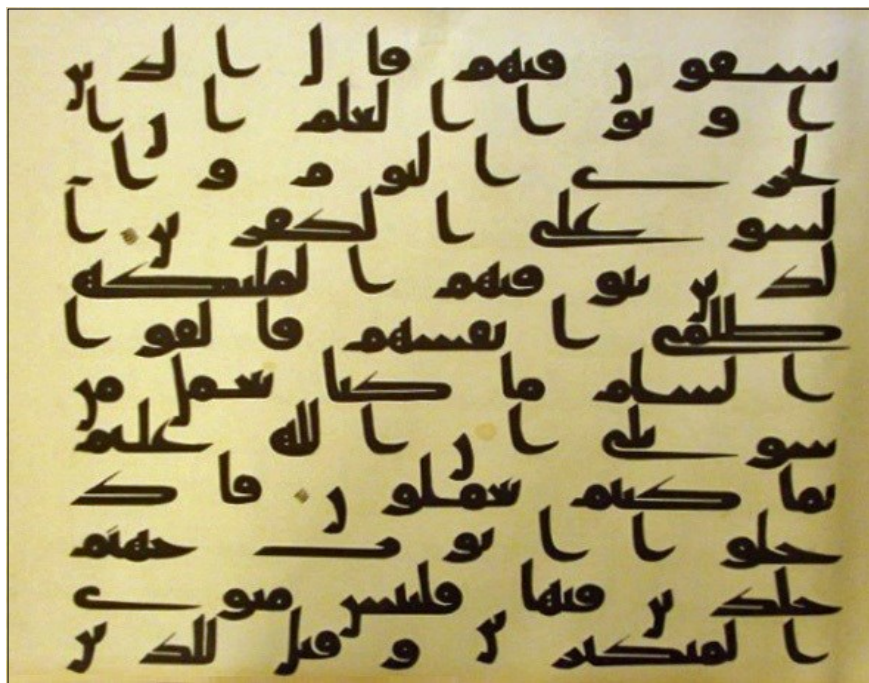 تشقون فيهم قال الذين
اوتوا العلم ان ا
لخزي اليوم وا
لسو على الكفرين ا
لذين تتوفيهم الملئكة
ظلمي انفسهم فالقوا
السلم ما كنا نعمل من
سو بلى ان الله عليم
بما كنتم تعملون فاد
خلوا ابوب جهنم
خلدين فيها فلبئس مثوى
المتكبرين وقيل للذين